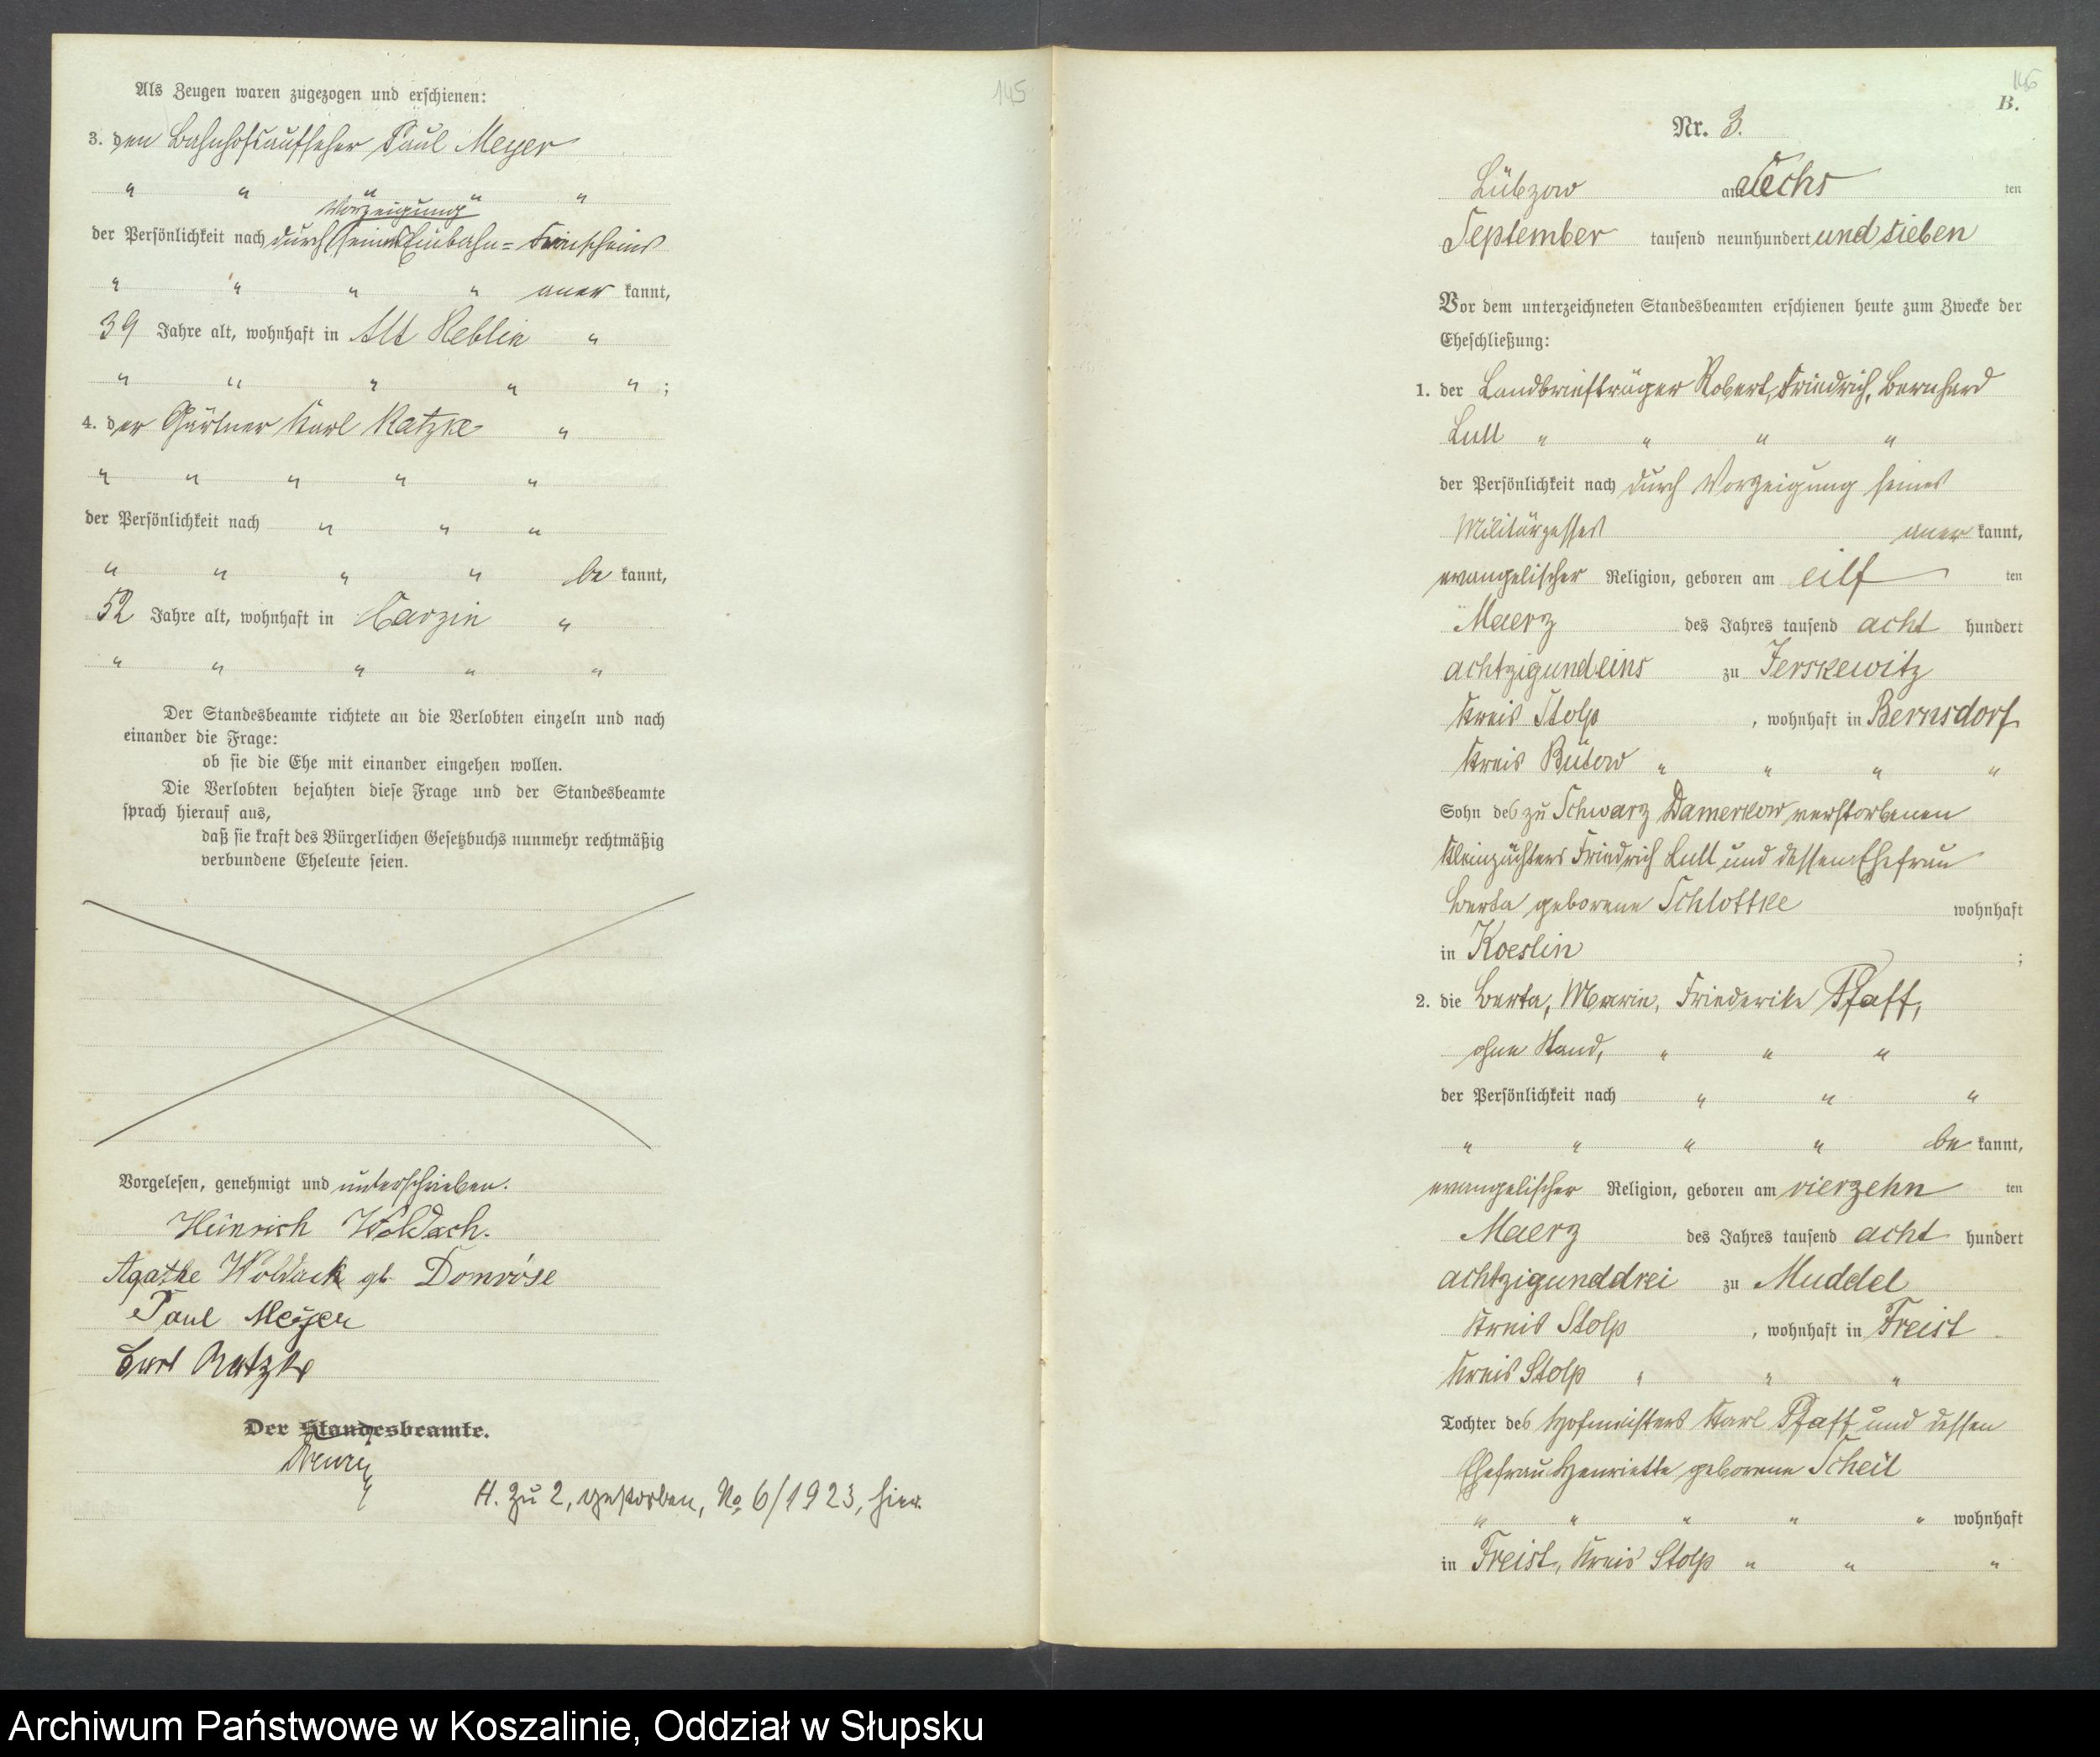 Als Zeugen waren zugezogen und erschienen:
3. den Bahnhofsaufseher Paul Meyer
" " " " "
Vorzeigung
der Persönlichkeit nach durch seines Eisenbahn-Freischeins
" " " " aner kannt,
39 Jahre alt, wohnhaft in Alt Reblin "
" " " " " ;
4. der Gärtner Karl Ratzke "
" " " " "
der Persönlichkeit nach " " "
" " " " be kannt,
52 Jahre alt, wohnhaft in Carzin "
" " " " "
Der Standesbeamte richtete an die Verlobten einzeln und nach
einander die Frage:
ob sie die Ehe mit einander eingehen wollen.
Die Verlobten bejahten diese Frage und der Standesbeamte
sprach hierauf aus,
daß sie kraft des Bürgerlichen Gesetzbuchs nunmehr rechtmäßig
verbundene Eheleute seien.
Vorgelesen, genehmigt und unterschrieben.
Heinrich Woldach.
Agathe Woldach gb. Domröse
Paul Meyer
Carl Ratzke
Der Standesbeamte.
H. zu 2, gestorben, No 6/1923, hier.
145
146
B.
Nr. 3.
Lübzow am Sechs ten
September tausend neunhundert und sieben
Vor dem unterzeichneten Standesbeamten erschienen heute zum Zwecke der
Eheschließung:
1. der Landbriefträger Robert, Friedrich, Bernhard
Lull " " " "
der Persönlichkeit nach durch Vorzeigung seines
Militärpasses aner kannt,
evangelischer Religion, geboren am eilf ten
Maerz des Jahres tausend acht hundert
achtzigundeins zu Jerskewitz
Kreis Stolp , wohnhaft in Bernsdorf
Kreis Bütow " " " "
Sohn des zu Schwarz Damerkow verstorbenen
Kleinpächters Friedrich Lull und dessen Ehefrau
Berta geborene Schlottke wohnhaft
in Koeslin ;
2. die Berta, Marie, Friederike Pfaff,
ohne Stand, " " "
der Persönlichkeit nach " " "
" " " " be kannt,
evangelischer Religion, geboren am vierzehn ten
Maerz des Jahres tausend acht hundert
achtzigunddrei zu Muddel
Kreis Stolp , wohnhaft in Freist
Kreis Stolp " " "
Tochter des Hofmeisters Karl Pfaff und dessen
Ehefrau Henriette geborene Scheil
" " " " " wohnhaft
in Freist, Kreis Stolp " " "
Archiwum Państwowe w Koszalinie, Oddział w Słupsku